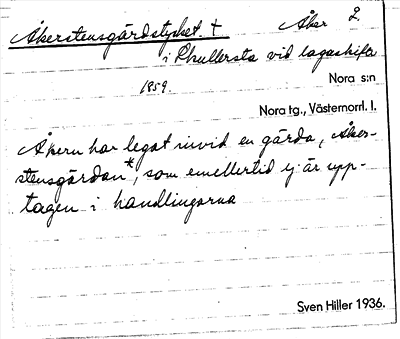 Åkerstensgårdstycket. + Åker 2.
i Skullersta vid lagaskifte
1859.
Nora s:n
Nora tg., Västernorrl. l.
Åkern har legat invid en gärda, Åker-
stensgärdan*, som emellertid ej är upp-
tagen i handlingarna
Sven Hiller 1936.